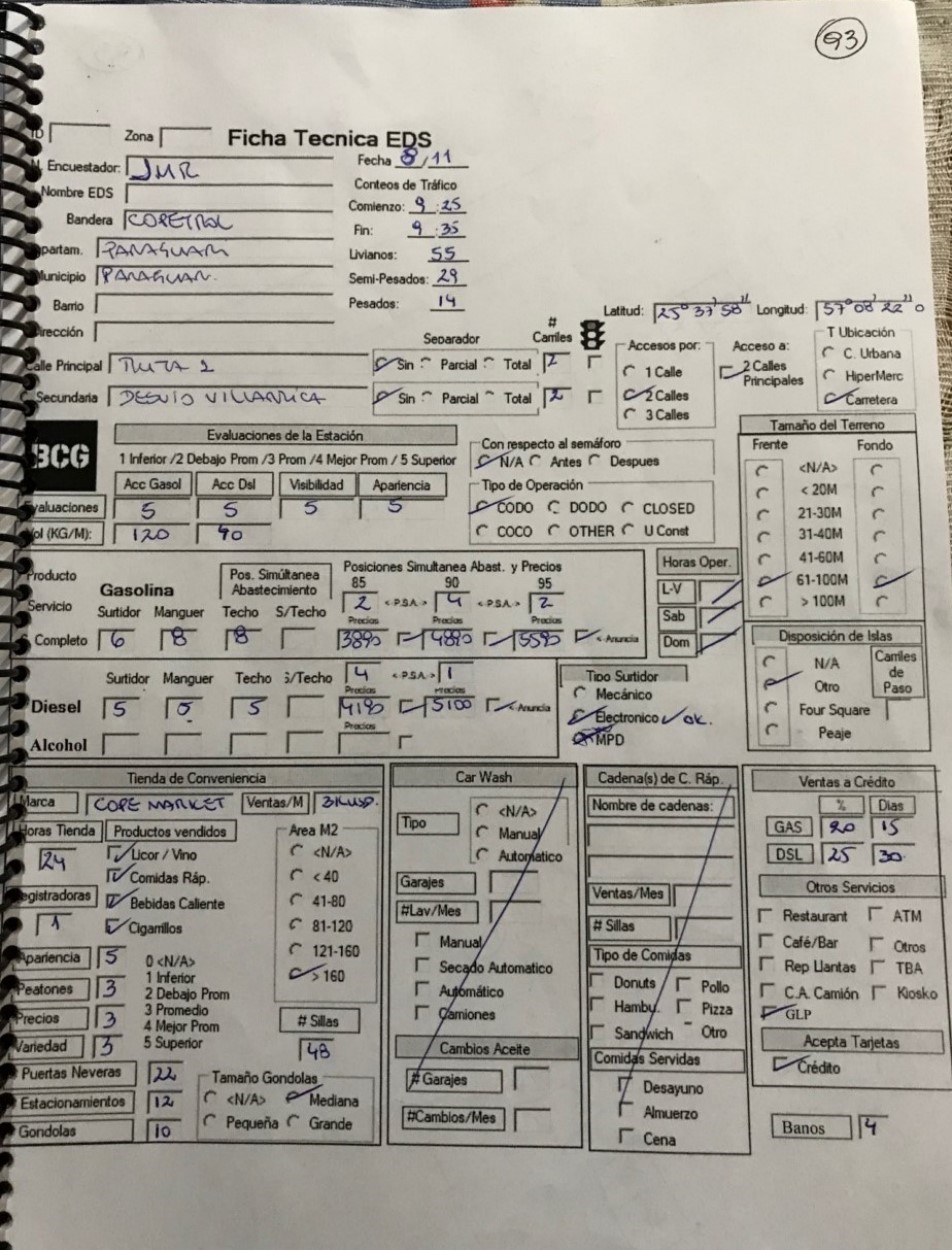 93
ID Zona Ficha Tecnica EDS
Encuestador: JMR Fecha 8/11
Nombre EDS Conteos de Tráfico
Bandera COPETROL Comienzo: 9:25
partam. PARAGUARI Fin: 9:35
Municipio PARAGUARI Livianos: 55
Barrio Semi-Pesados: 29
Pesados: 14
Latitud: 25° 37' 58'' Longitud: 57° 08' 22'' O
Dirección Separador # Carriles
Calle Principal RUTA 1 Sin Parcial Total 2
Secundaria DESVIO VILLARRICA Sin Parcial Total 2
Accesos por: 1 Calle 2 Calles 3 Calles
Acceso a: 2 Calles Principales
T Ubicación C. Urbana HiperMerc Carretera
BCG Evaluaciones de la Estación
1 Inferior /2 Debajo Prom /3 Prom /4 Mejor Prom / 5 Superior
Acc Gasol Acc Dsl Visibilidad Apariencia
Evaluaciones 5 5 5 5
Vol (KG/M): 120 90
Con respecto al semáforo
N/A Antes Despues
Tipo de Operación
CODO DODO CLOSED
COCO OTHER U Const
Tamaño del Terreno
Frente Fondo
<N/A>
< 20M
21-30M
31-40M
41-60M
61-100M
> 100M
Producto Gasolina Pos. Simúltanea Abastecimiento Posiciones Simultanea Abast. y Precios
85 90 95
Servicio 2 < P.S.A. > 4 < P.S.A. > 2
Surtidor Manguer Techo S/Techo Precios Precios Precios
Completo 6 8 8 3890 4890 5590 < Anuncia
Horas Oper.
L-V
Sab
Dom
Disposición de Islas
N/A
Otro
Four Square
Peaje
Carriles de Paso
Surtidor Manguer Techo S/Techo 4 < P.S.A. > 1
Precios Precios
Diesel 5 5 5 4190 5100 < Anuncia
Precios
Alcohol
Tipo Surtidor
Mecánico
Electronico ok.
MPD
Tienda de Conveniencia
Marca COPE MARKET Ventas/M
Horas Tienda Productos vendidos
24
Licor / Vino
Comidas Ráp.
Registradoras Bebidas Caliente
1 Cigarrillos
Area M2
<N/A>
< 40
41-80
81-120
121-160
> 160
Apariencia 5
Peatones 3
Precios 3
Variedad 3
0 <N/A>
1 Inferior
2 Debajo Prom
3 Promedio
4 Mejor Prom
5 Superior
# Sillas
48
Puertas Neveras 22
Estacionamientos 12
Gondolas 10
Tamaño Gondolas
<N/A> Mediana
Pequeña Grande
Car Wash
Tipo
<N/A>
Manual
Automatico
Garajes
#Lav/Mes
Manual
Secado Automatico
Automático
Camiones
Cambios Aceite
#Garajes
#Cambios/Mes
Cadena(s) de C. Ráp.
Nombre de cadenas:
Ventas/Mes
# Sillas
Tipo de Comidas
Donuts Pollo
Hambu. Pizza
Sandwich Otro
Comidas Servidas
Desayuno
Almuerzo
Cena
Ventas a Crédito
% Dias
GAS 20 15
DSL 25 30
Otros Servicios
Restaurant ATM
Café/Bar Otros
Rep Llantas TBA
C.A. Camión Kiosko
GLP
Acepta Tarjetas
Crédito
Banos 4